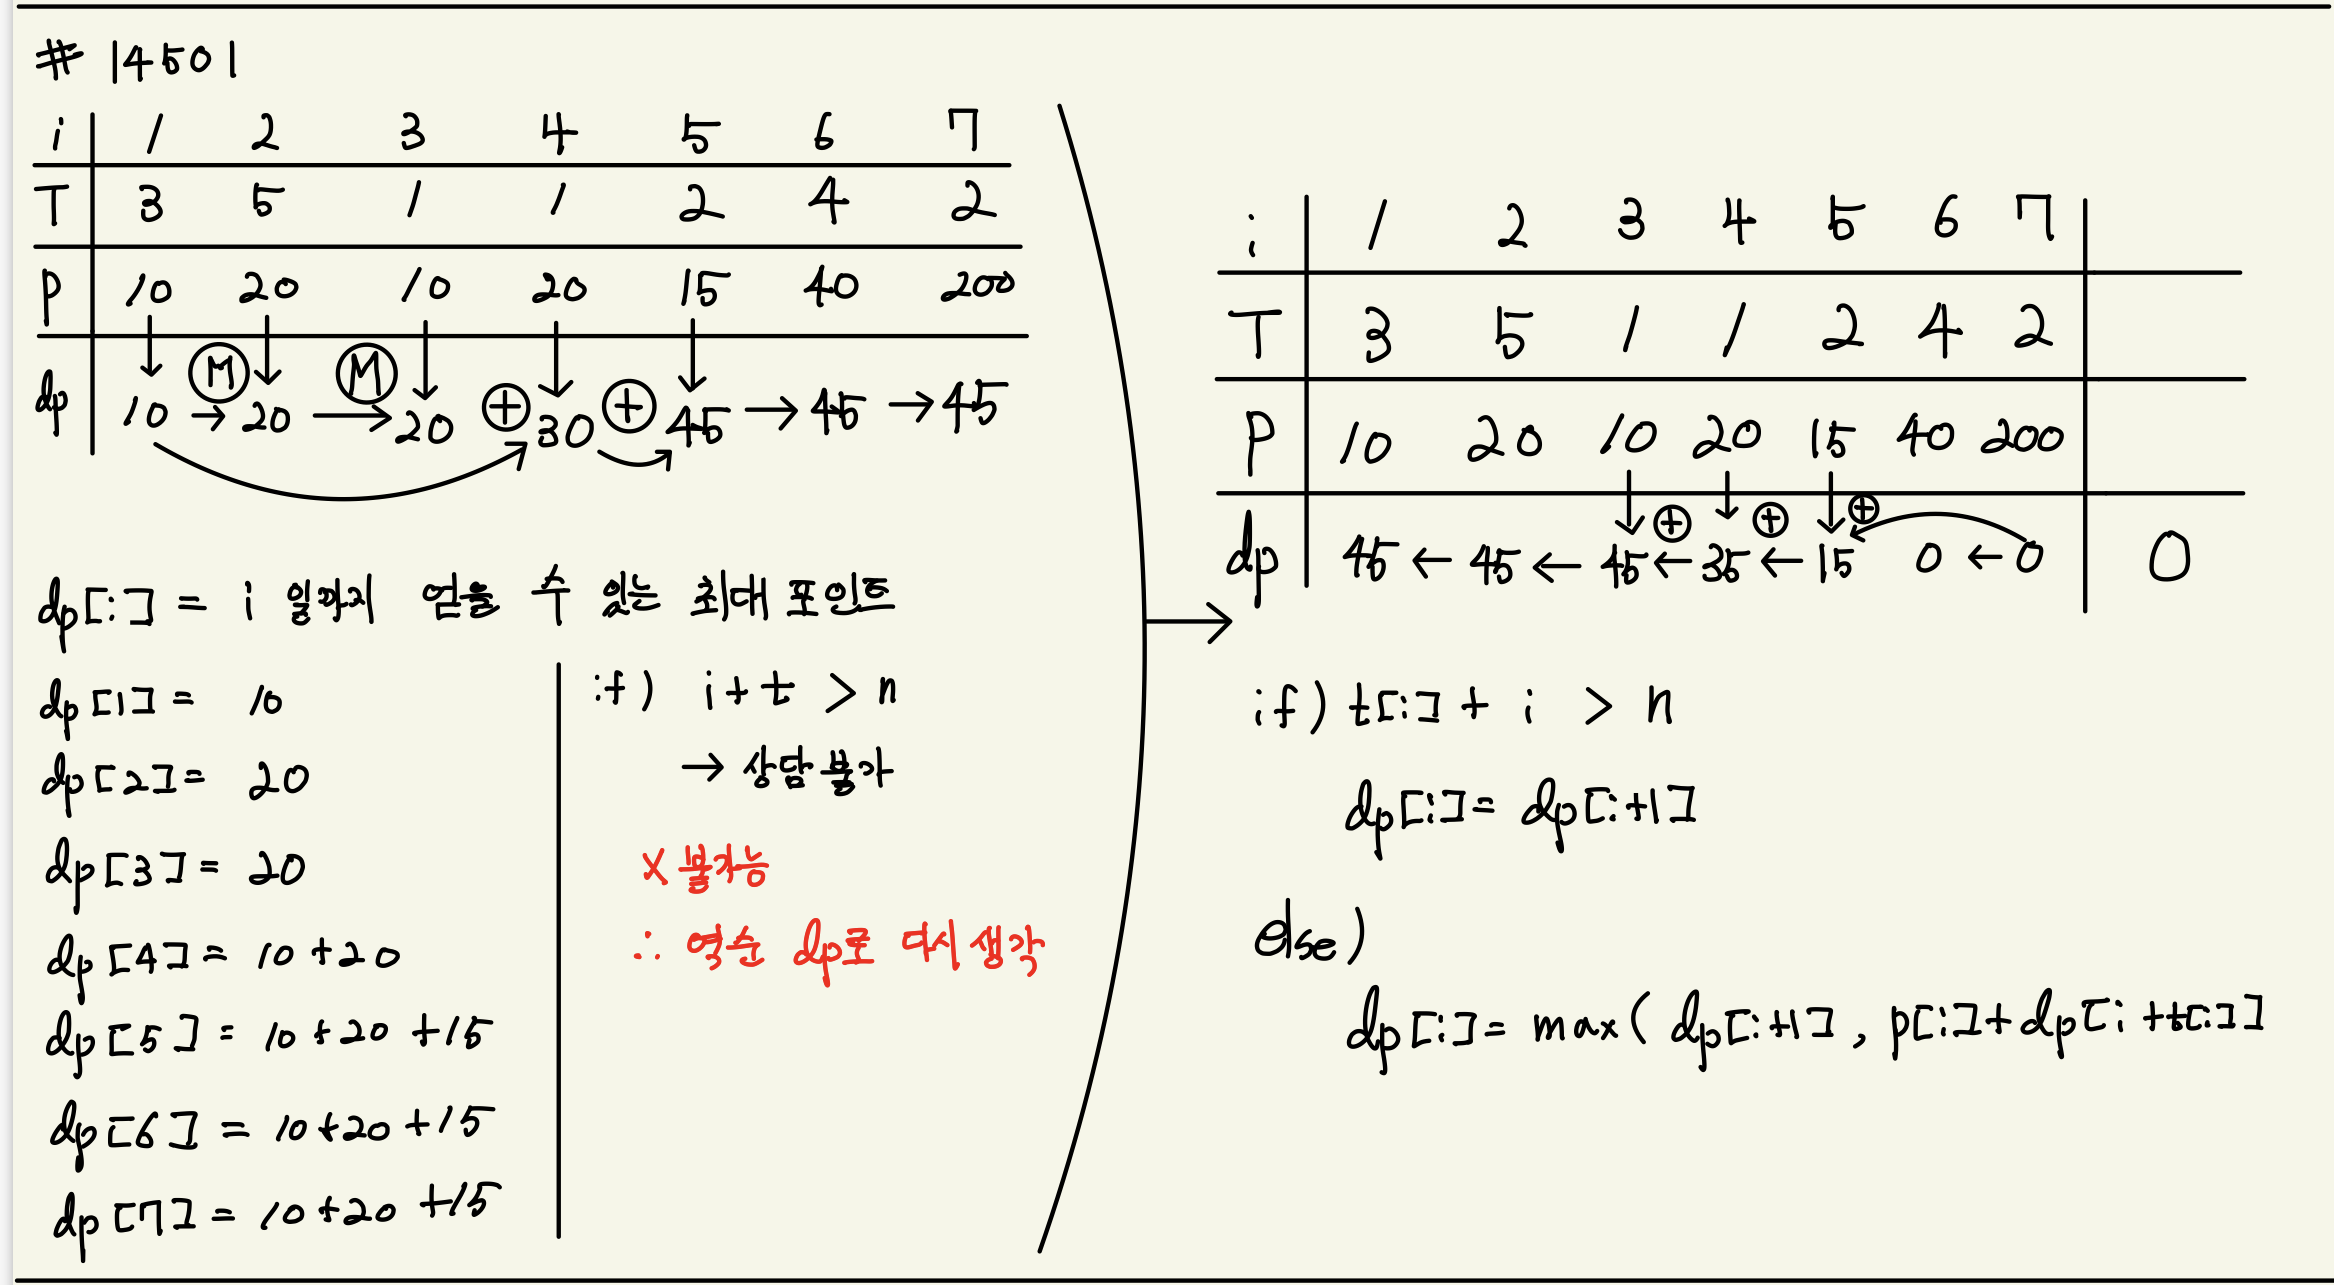 # 14501
i 1 2 3 4 5 6 7
T 3 5 1 1 2 4 2
P 10 20 10 20 15 40 200
M M + +
dp 10 → 20 → 20 30 45 → 45 → 45
dp[i] = i 일까지 얻을 수 있는 최대 포인트
dp[1] = 10
dp[2] = 20
dp[3] = 20
dp[4] = 10+20
dp[5] = 10+20+15
dp[6] = 10+20+15
dp[7] = 10+20+15
if) i+t > n
→ 상담 불가
x 불가능
∴ 역순 dp로 다시 생각
→
i 1 2 3 4 5 6 7
T 3 5 1 1 2 4 2
P 10 20 10 20 15 40 200
+ + +
dp 45 ← 45 ← 45 ← 35 ← 15 0 ← 0 0
if) t[i] + i > n
dp[i] = dp[i+1]
else)
dp[i] = max( dp[i+1] , p[i]+dp[i+t[i]]